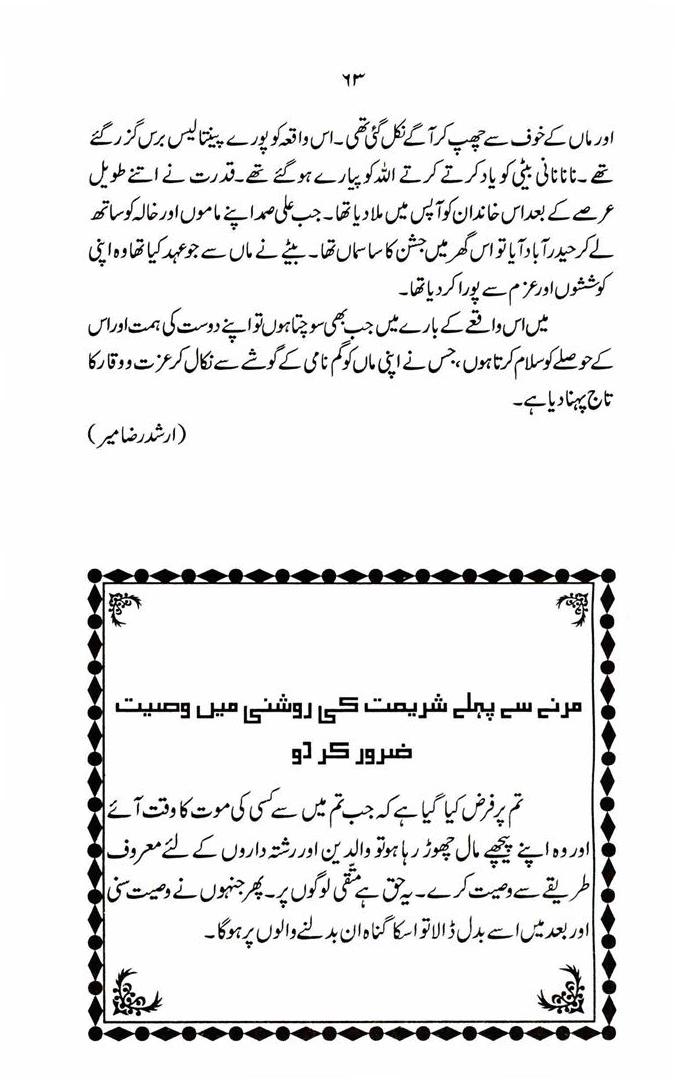 ۶۳
اور ماں کے خوف سے چھپ کر آگے نکل گئی تھی۔ اس واقعہ کو پورے پینتالیس برس گزر گئے
تھے۔ نانا نانی بیٹی کو یاد کرتے کرتے اللہ کو پیارے ہو گئے تھے۔ قدرت نے اتنے طویل
عرصے کے بعد اس خاندان کو آپس میں ملا دیا تھا۔ جب علی صمد اپنے ماموں اور خالہ کو ساتھ
لے کر حیدرآباد آیا تو اس گھر میں جشن کا سا سماں تھا۔ بیٹے نے ماں سے جو عہد کیا تھا وہ اپنی
کوششوں اور عزم سے پورا کر دیا تھا۔
میں اس واقعے کے بارے میں جب بھی سوچتا ہوں تو اپنے دوست کی ہمت اور اس
کے حوصلے کو سلام کرتا ہوں، جس نے اپنی ماں کو گم نامی کے گوشے سے نکال کر عزت و وقار کا
تاج پہنا دیا ہے۔
(ارشد رضا میر)
مرنے سے پہلے شریعت کی روشنی میں وصیت
ضرور کر دو
تم پر فرض کیا گیا ہے کہ جب تم میں سے کسی کی موت کا وقت آئے
اور وہ اپنے پیچھے مال چھوڑ رہا ہو تو والدین اور رشتہ داروں کے لئے معروف
طریقے سے وصیت کرے۔ یہ حق ہے متّقی لوگوں پر۔ پھر جنہوں نے وصیت سنی
اور بعد میں اسے بدل ڈالا تو اسکا گناہ ان بدلنے والوں پر ہوگا۔